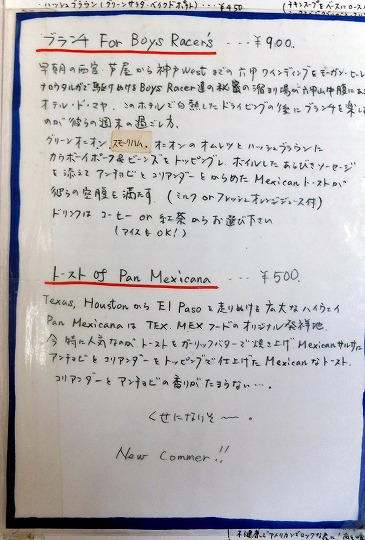 ハッシュブラウン (グリーンサラダ・ベイクドポテト) ‥‥ ¥450
ブランチ For Boys Racer's ‥‥ ¥900.
早朝の西宮、芦屋から神戸Westまでの六甲ワインディングを
ナロウタルガで駆けぬけるBoys Racer達の秘密の溜り場が六甲山中腹にある
オテル・ド・マヤ。このホテルで白熱したドライビングの後にブランチを楽し
のが彼らの週末の過ごし方。
グリーンオニオン、スモークハム、オニオンのオムレツとハッシュブラウンに
カウボーイポーク&ビーンズをトッピングし、ボイルしたあらびきソーセージ
を添えてアンチョビとコリアンダーをからめたMexicanトーストが
彼らの空腹を満たす。(ミルク or フレッシュオレンジジュース付)
ドリンクは コーヒー or 紅茶からお選び下さい
(アイスもOK!)
トースト Of Pan Mexicana ‥‥ ¥500.
Texas, HoustonからEl Pasoを走りぬける広大なハイウェイ
Pan MexicanaはTEX.MEXフードのオリジナル発祥地.
今特に人気なのがトーストをガーリックバターで焼き上げMexicanサルサに
アンチョビとコリアンダーをトッピングで仕上げたMexicanなトースト.
コリアンダーとアンチョビの香りがたまらない….
くせになりそ〜.
New Commer!!